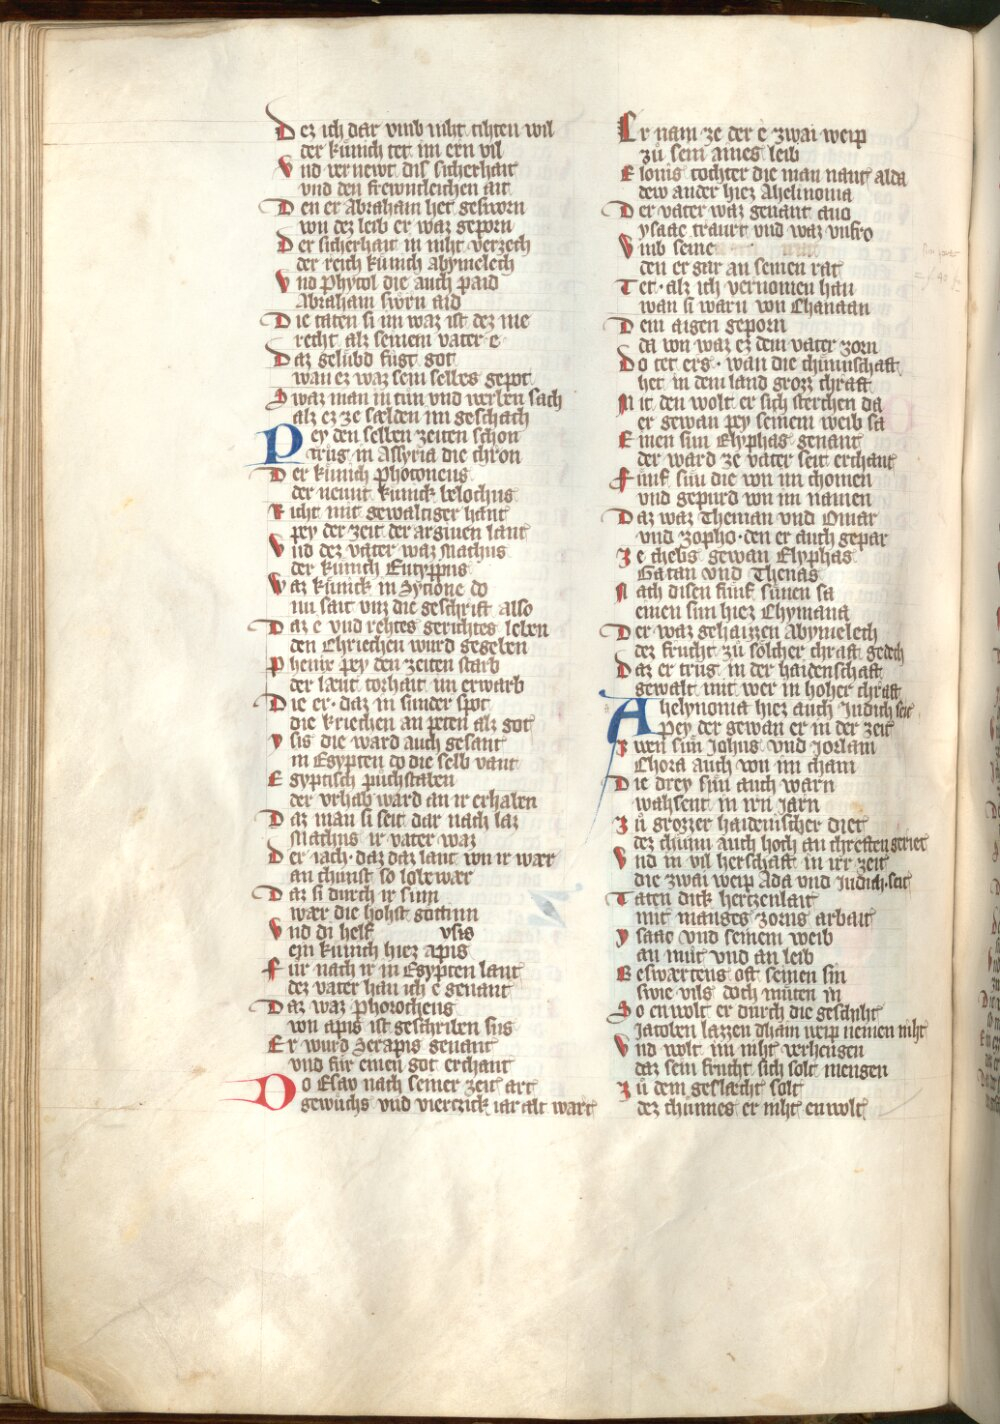 Dez ich dar vmb niht tihten wil
der kuͤnich tet im ern vil
Vnd vernewt dis sicherhait
vnd den frewntleichen ait
Den er Abraham het gesworn
von dez leib er waz geporn
Der sicherhait in niht verzech
der reich kuͤnich abymelech
Vnd Phytol die auch paid
Abraham swͦrn aid
Die taten si im waz ist dez me
recht alz seinem vater e
Daz geluͤbd fuͤgt got
wan ez waz sein selbes gepot
Swaz man in tuͤn vnd werben sach
alz ez ze sælden im geschach
Pey den selben zeiten schon
truͦg in Assyria die chron
Der kuͤnich Photoneus
der neunt kuͤnick belochus
Richt mit gewaltiger hant
pey der zeit der argiuen lant
Vnd dez vater waz Mathus
der kuͤnich Eutyppus
Waz kuͤnick in Sycione do
nu sait vnz die geschrift also
Daz e vnd rehtes gerichtes leben
den Chriechen wurd gegeben
Phenix pey den zeiten starb
der læut torhait im erwarb
Die er daz in sunder spot
die kriechen an peten alz got
ysis die ward auch gesant
in Egypten do die selb vant
Egyptisch puͤchstaben
der vrhab ward an ir erhaben
Daz man si seit dar nach laz
Mathus ir vater waz
Der iach daz daz lant von ir wær
an chunst so lobewær
Daz si durch ir sinn
wær die hohst gottinn
Vnd di helf ysis
ein kuͤnich hiez apis
Fuͤr nach ir in Egypten lant
dez vater han ich e genant
Daz waz Phorocheus
von apis ist geschriben sus
Er wurd Serapis genant
vnd fuͤr einen got erchant
Do Esav nach seiner zeit art
gewuͦchs vnd viertzick iar alt wart
Er nam ze der e zwai weip
zuͦ sein aines leib
Elonis tochter die man nant alda
dew ander hiez Ahelinonia
Der vater waz genant ano
ysaac traurt vnd waz vnfro
Vmb seine
den er gar an seinen rat
Tet alz ich vernomen han
wan si warn von Chanaan
Dem aigen geporn
da von waz ez dem vater zorn
Do tet ers wan die chuͤnnschaft
het in dem land grozz chraft
Mit den wolt er sich sterchen da
er gewan pey seinem weib sa
Einen sun Elyphas genant
der ward ze vater seit erchant
Fuͤnf suͤn die von im chomen
vnd gepurd von im namen
Daz waz Theman vnd Omar
vnd Zopho den er auch gepar
Ze chebs gewan Elyphas
Gatan vnd Thenas
Nach disen fuͤnf suͤnen sa
einen sun hiez Chymana
Der waz gehaizzen Abymelech
dez frucht zuͦ soͤlcher chraft gedech
Daz er truͦg in der haidenschaft
gewalt mit wer in hoher chraft
Ahelynonia hiez auch Judich seit
pey der gewan er in der zeit
Zwen suͤn Johus vnd Jorlam
Chora auch von im cham
Die drey suͤn auch warn
wahsent in irn Jarn
Zuͦ grozzer haidenischer diet
dez chuͦm auch hoch an chreften geriet
Vnd in vil herschaft in irr zeit
die zwai weip Ada vnd Judich seit
Taten dick hertzenlait
mit manges zorns arbait
ysaac vnd seinem weib
an muͦt vnd an leib
Beswærtens oft seinen sin
swie vils doch muͤten in
So enwolt er durch die geschiht
Jacoben lazzen dhain weip nemen niht
Vnd wolt im niht verhengen
daz sein frucht sich solt mengen
Zuͦ dem geslæcht solt
dez chuͤnnes er niht enwolt